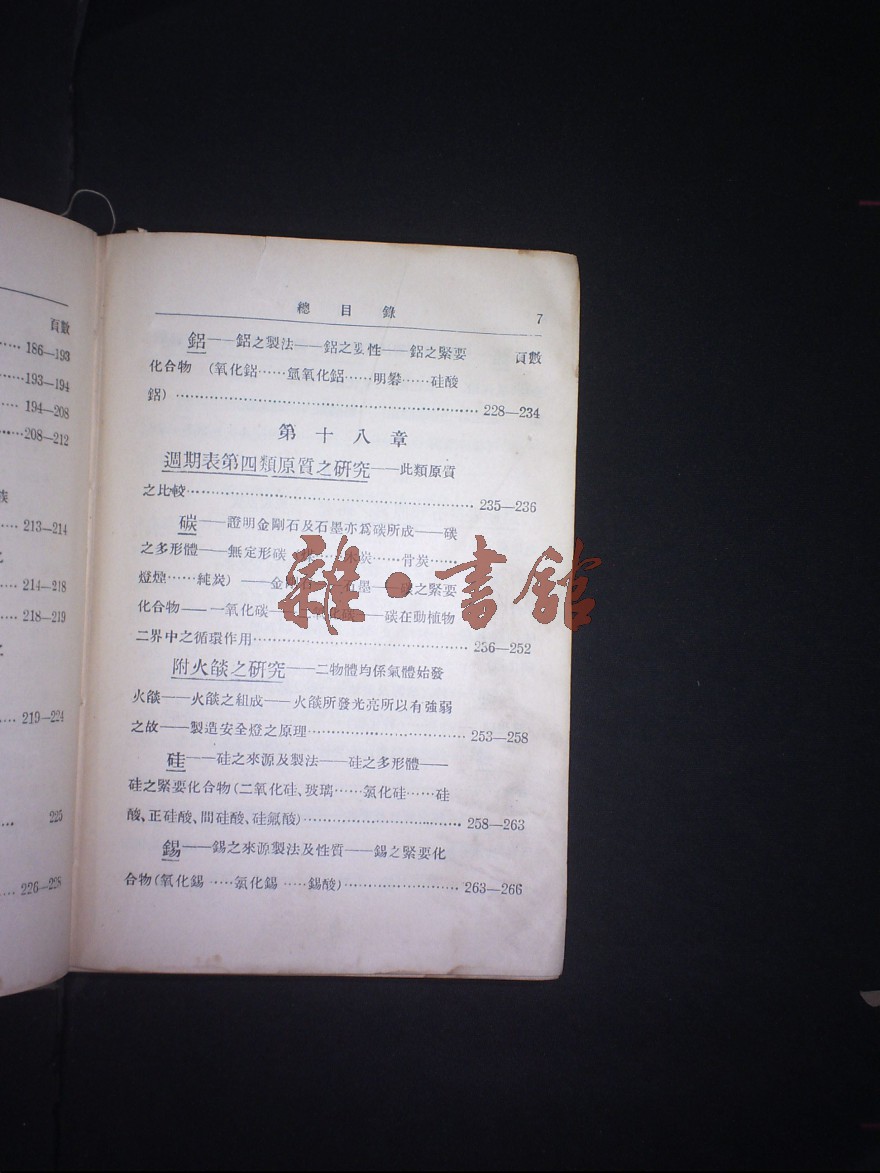 頁數
186—193
193—194
194—208
208—212
族
213—214
214—218
218—219
219—224
225
226—228
總目錄 7
鋁——鋁之製法——鋁之要性——鋁之緊要 頁數
化合物 (氧化鋁……氫氧化鋁……明礬……硅酸
鋁)……228—234
第十八章
週期表第四類原質之研究——此類原質
之比較……235—236
碳——證明金剛石及石墨亦爲碳所成——碳
之多形體——無定形碳 炭……骨炭……
燈煙……純炭)——金剛 石墨——碳之緊要
化合物——一氧化碳—— ——碳在動植物
二界中之循環作用……236—252
附火燄之研究——二物體均係氣體始發
火燄——火燄之組成——火燄所發光亮所以有強弱
之故——製造安全燈之原理……253—258
硅——硅之來源及製法——硅之多形體——
硅之緊要化合物(二氧化硅、玻璃……氯化硅……硅
酸、正硅酸、間硅酸、硅氟酸)……258—263
錫——錫之來源製法及性質——錫之緊要化
合物(氧化錫……氯化錫……錫酸)……263—266
雜·書館